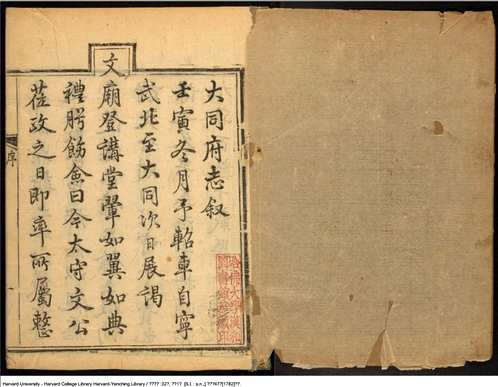 大同府志叙
壬寅冬月予軺車自寧
武北至大同次日展謁
文廟登講堂翬如翼如典
禮腭飭僉曰今太守文公
蒞政之日即率所屬整
序
Harvard University - Harvard College Library Harvard-Yenching Library / ???? :32?. ??1?. [S.l. : s.n.,] ??47?[1782]??.